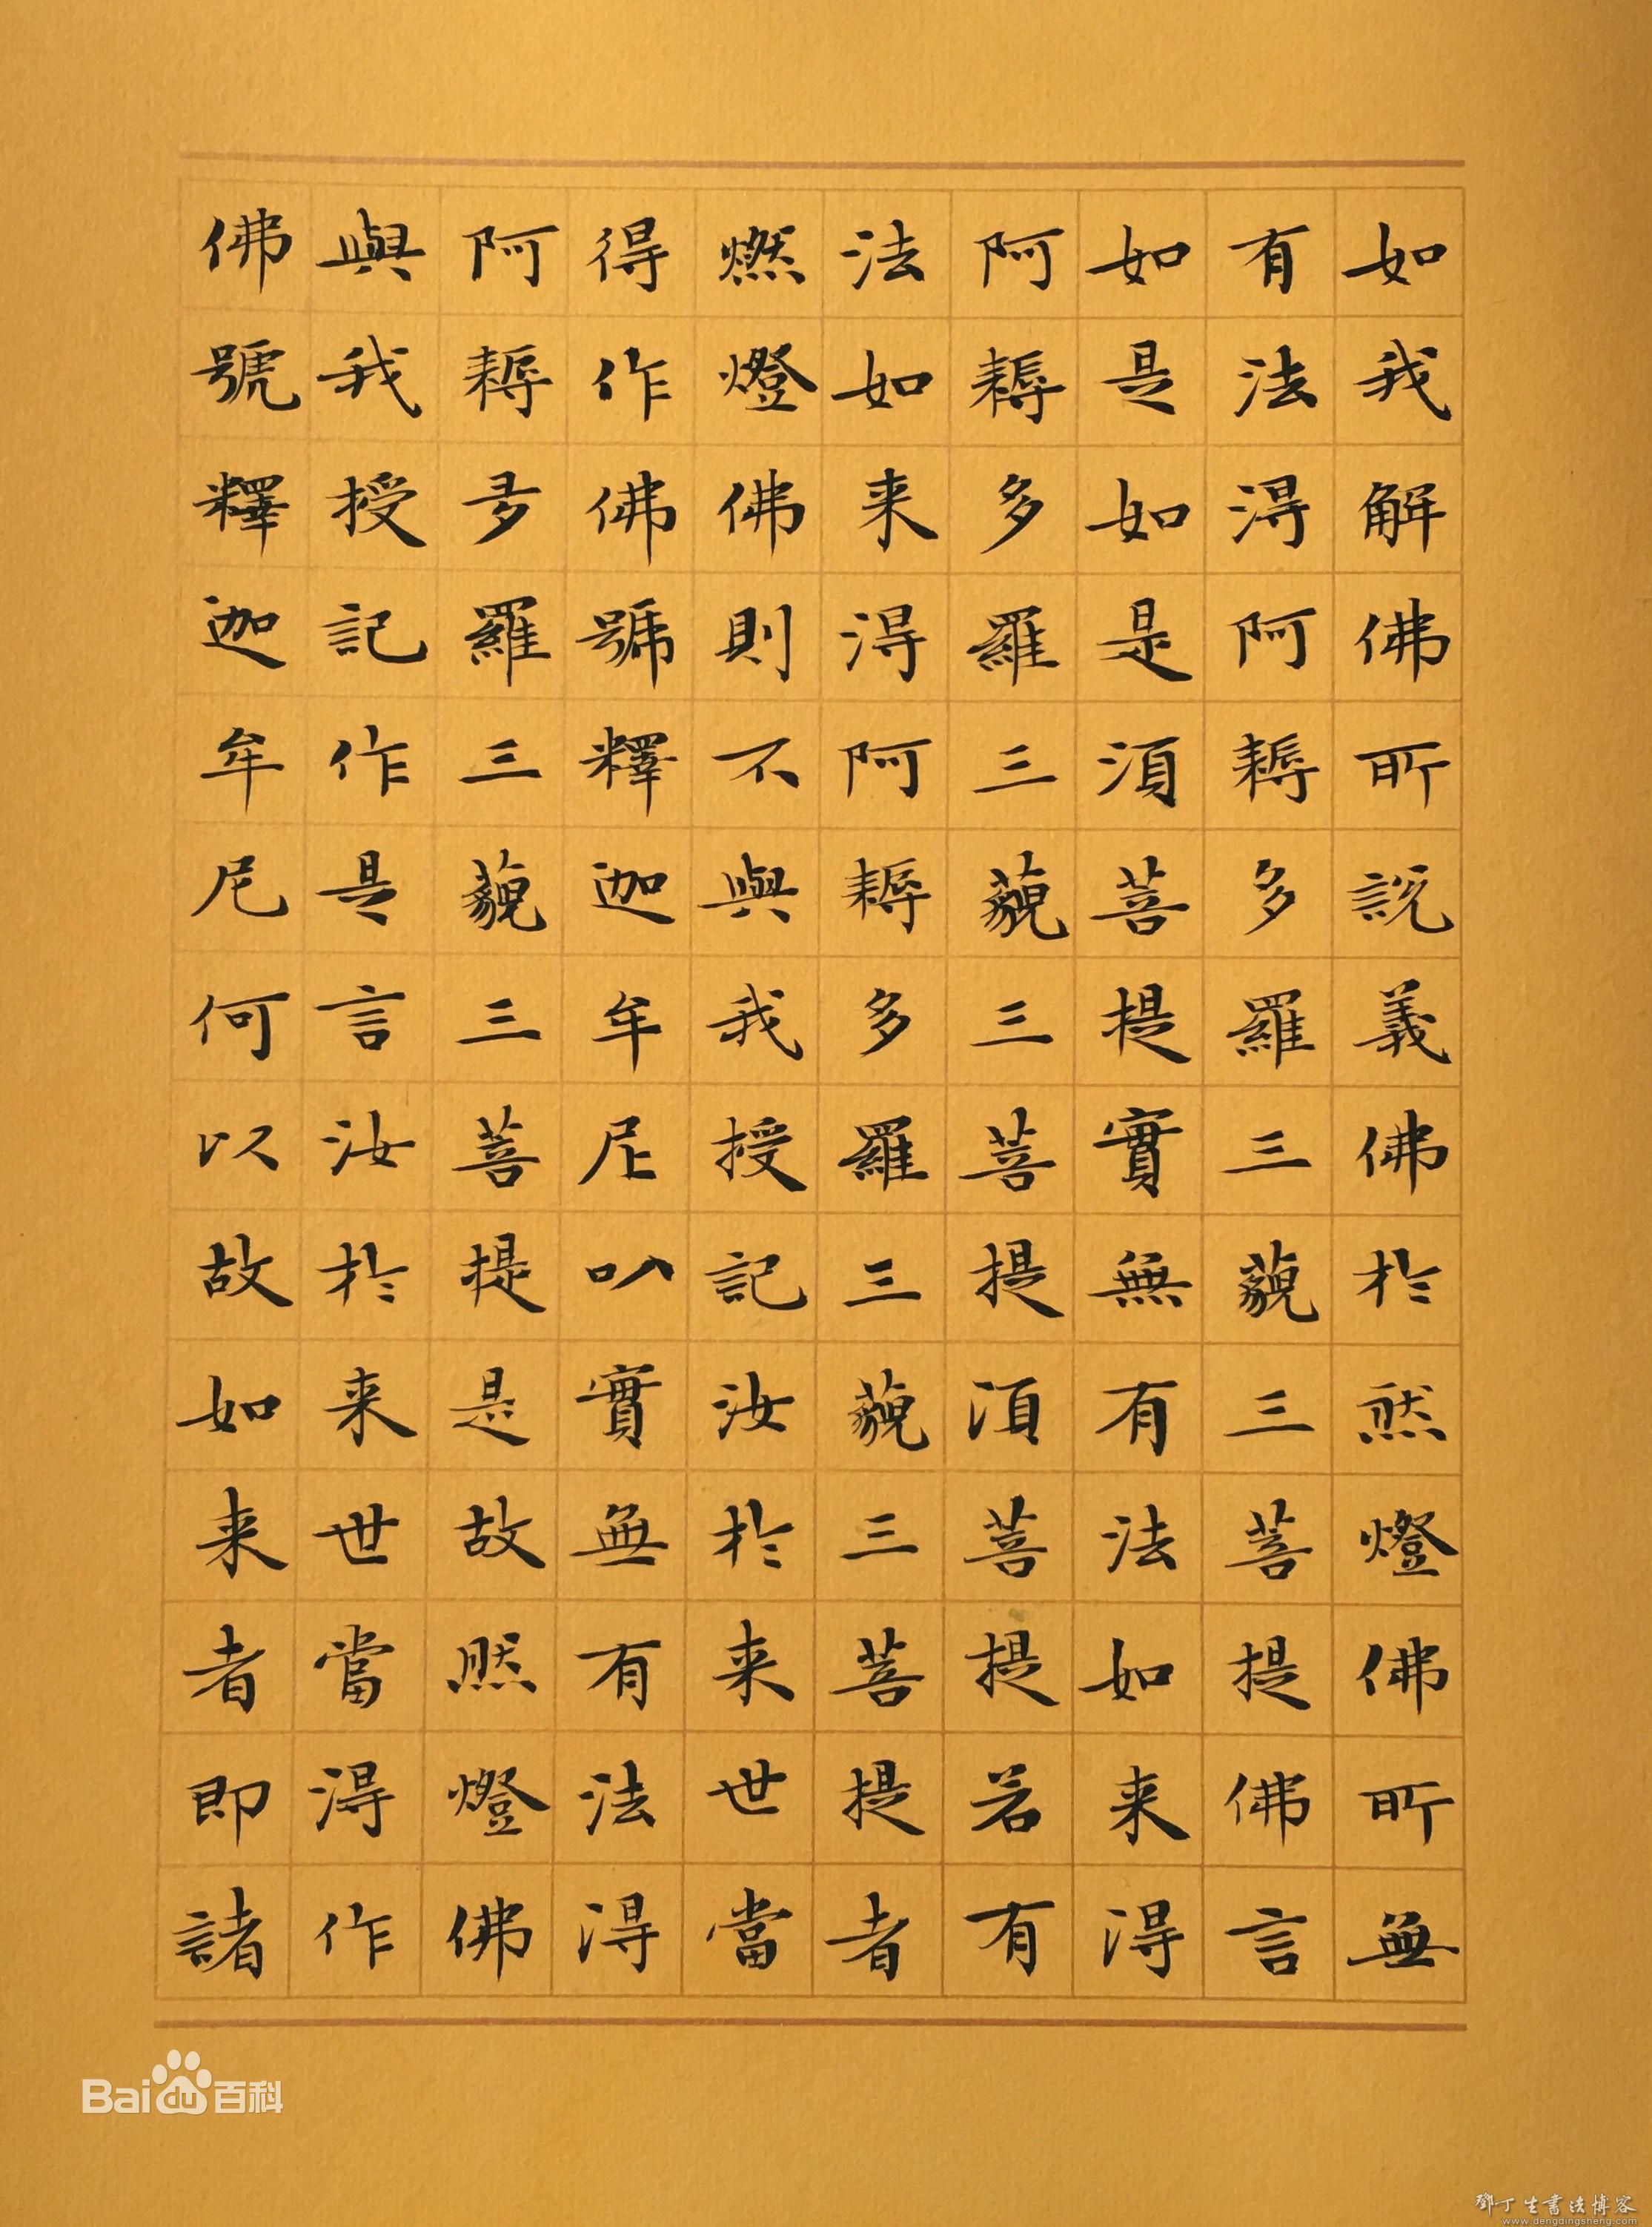 如我解佛所說義佛於然燈佛所無
有法得阿耨多羅三藐三菩提佛言
如是如是須菩提實無有法如来得
阿耨多羅三藐三菩提須菩提若有
法如来得阿耨多羅三藐三菩提者
燃燈佛則不與我授記汝於来世當
得作佛號釋迦牟尼以實無有法得
阿耨多羅三藐三菩提是故然燈佛
與我授記作是言汝於来世當得作
佛號釋迦牟尼何以故如来者即諸
Bai du 百科
鄧丁生書法博客
www.dengdingsheng.com